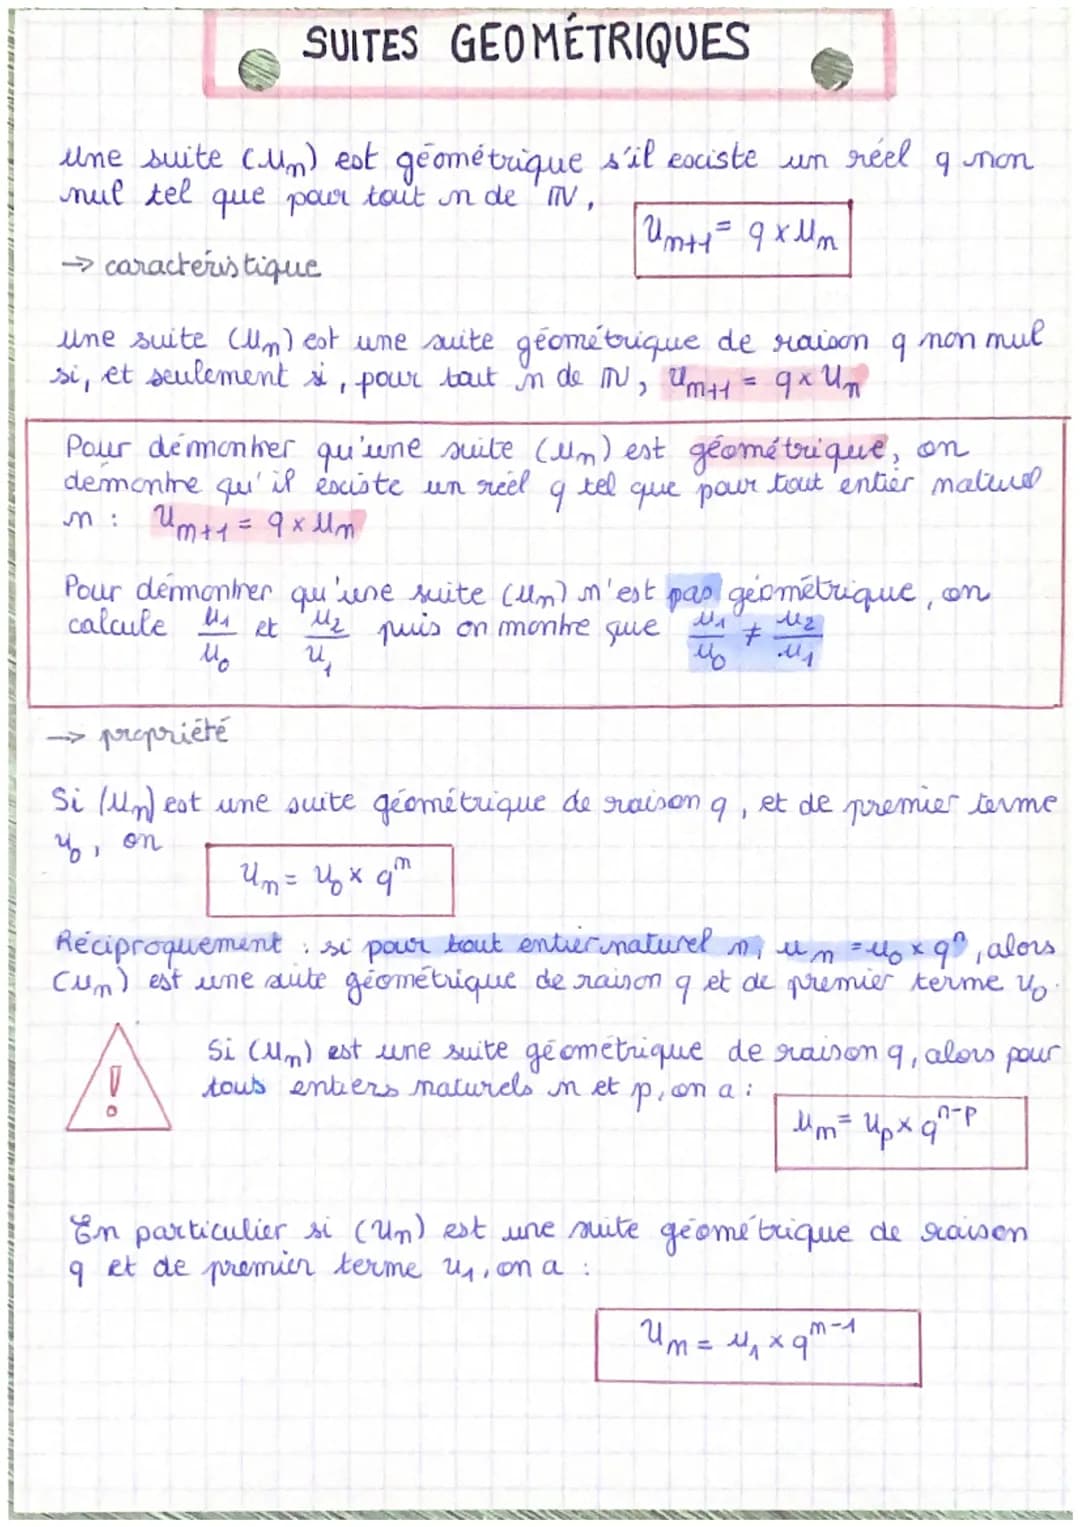 SUITES GEOMÉTRIQUES
Une suite (Un) est géométrique s'il existe un réel q non
nul tel que pour tout n de ℕ,
Un+1 = q × Un
→ caractéristique
Une suite (Un) est une suite géométrique de raison q non nul
si, et seulement si, pour tout n de ℕ, Un+1 = q × Un
Pour démontrer qu'une suite (un) est géométrique, on
démontre qu'il existe un réel q tel que pour tout entier naturel
n : Un+1 = q × Un
Pour démontrer qu'une suite (un) n'est pas géométrique, on
calcule u1/u0 et u2/u1 puis on montre que u1/u0 ≠ u2/u1
→ propriété
Si (Un) est une suite géométrique de raison q, et de premier terme
u0, on
Un = u0 × qⁿ
Réciproquement : si pour tout entier naturel n, un = u0 × qⁿ, alors
(un) est une suite géométrique de raison q et de premier terme u0.
!
Si (Un) est une suite géométrique de raison q, alors pour
tous entiers naturels n et p, on a :
Un = Up × qⁿ⁻ᵖ
En particulier si (Un) est une suite géométrique de raison
q et de premier terme u1, on a :
Un = u1 × qⁿ⁻¹